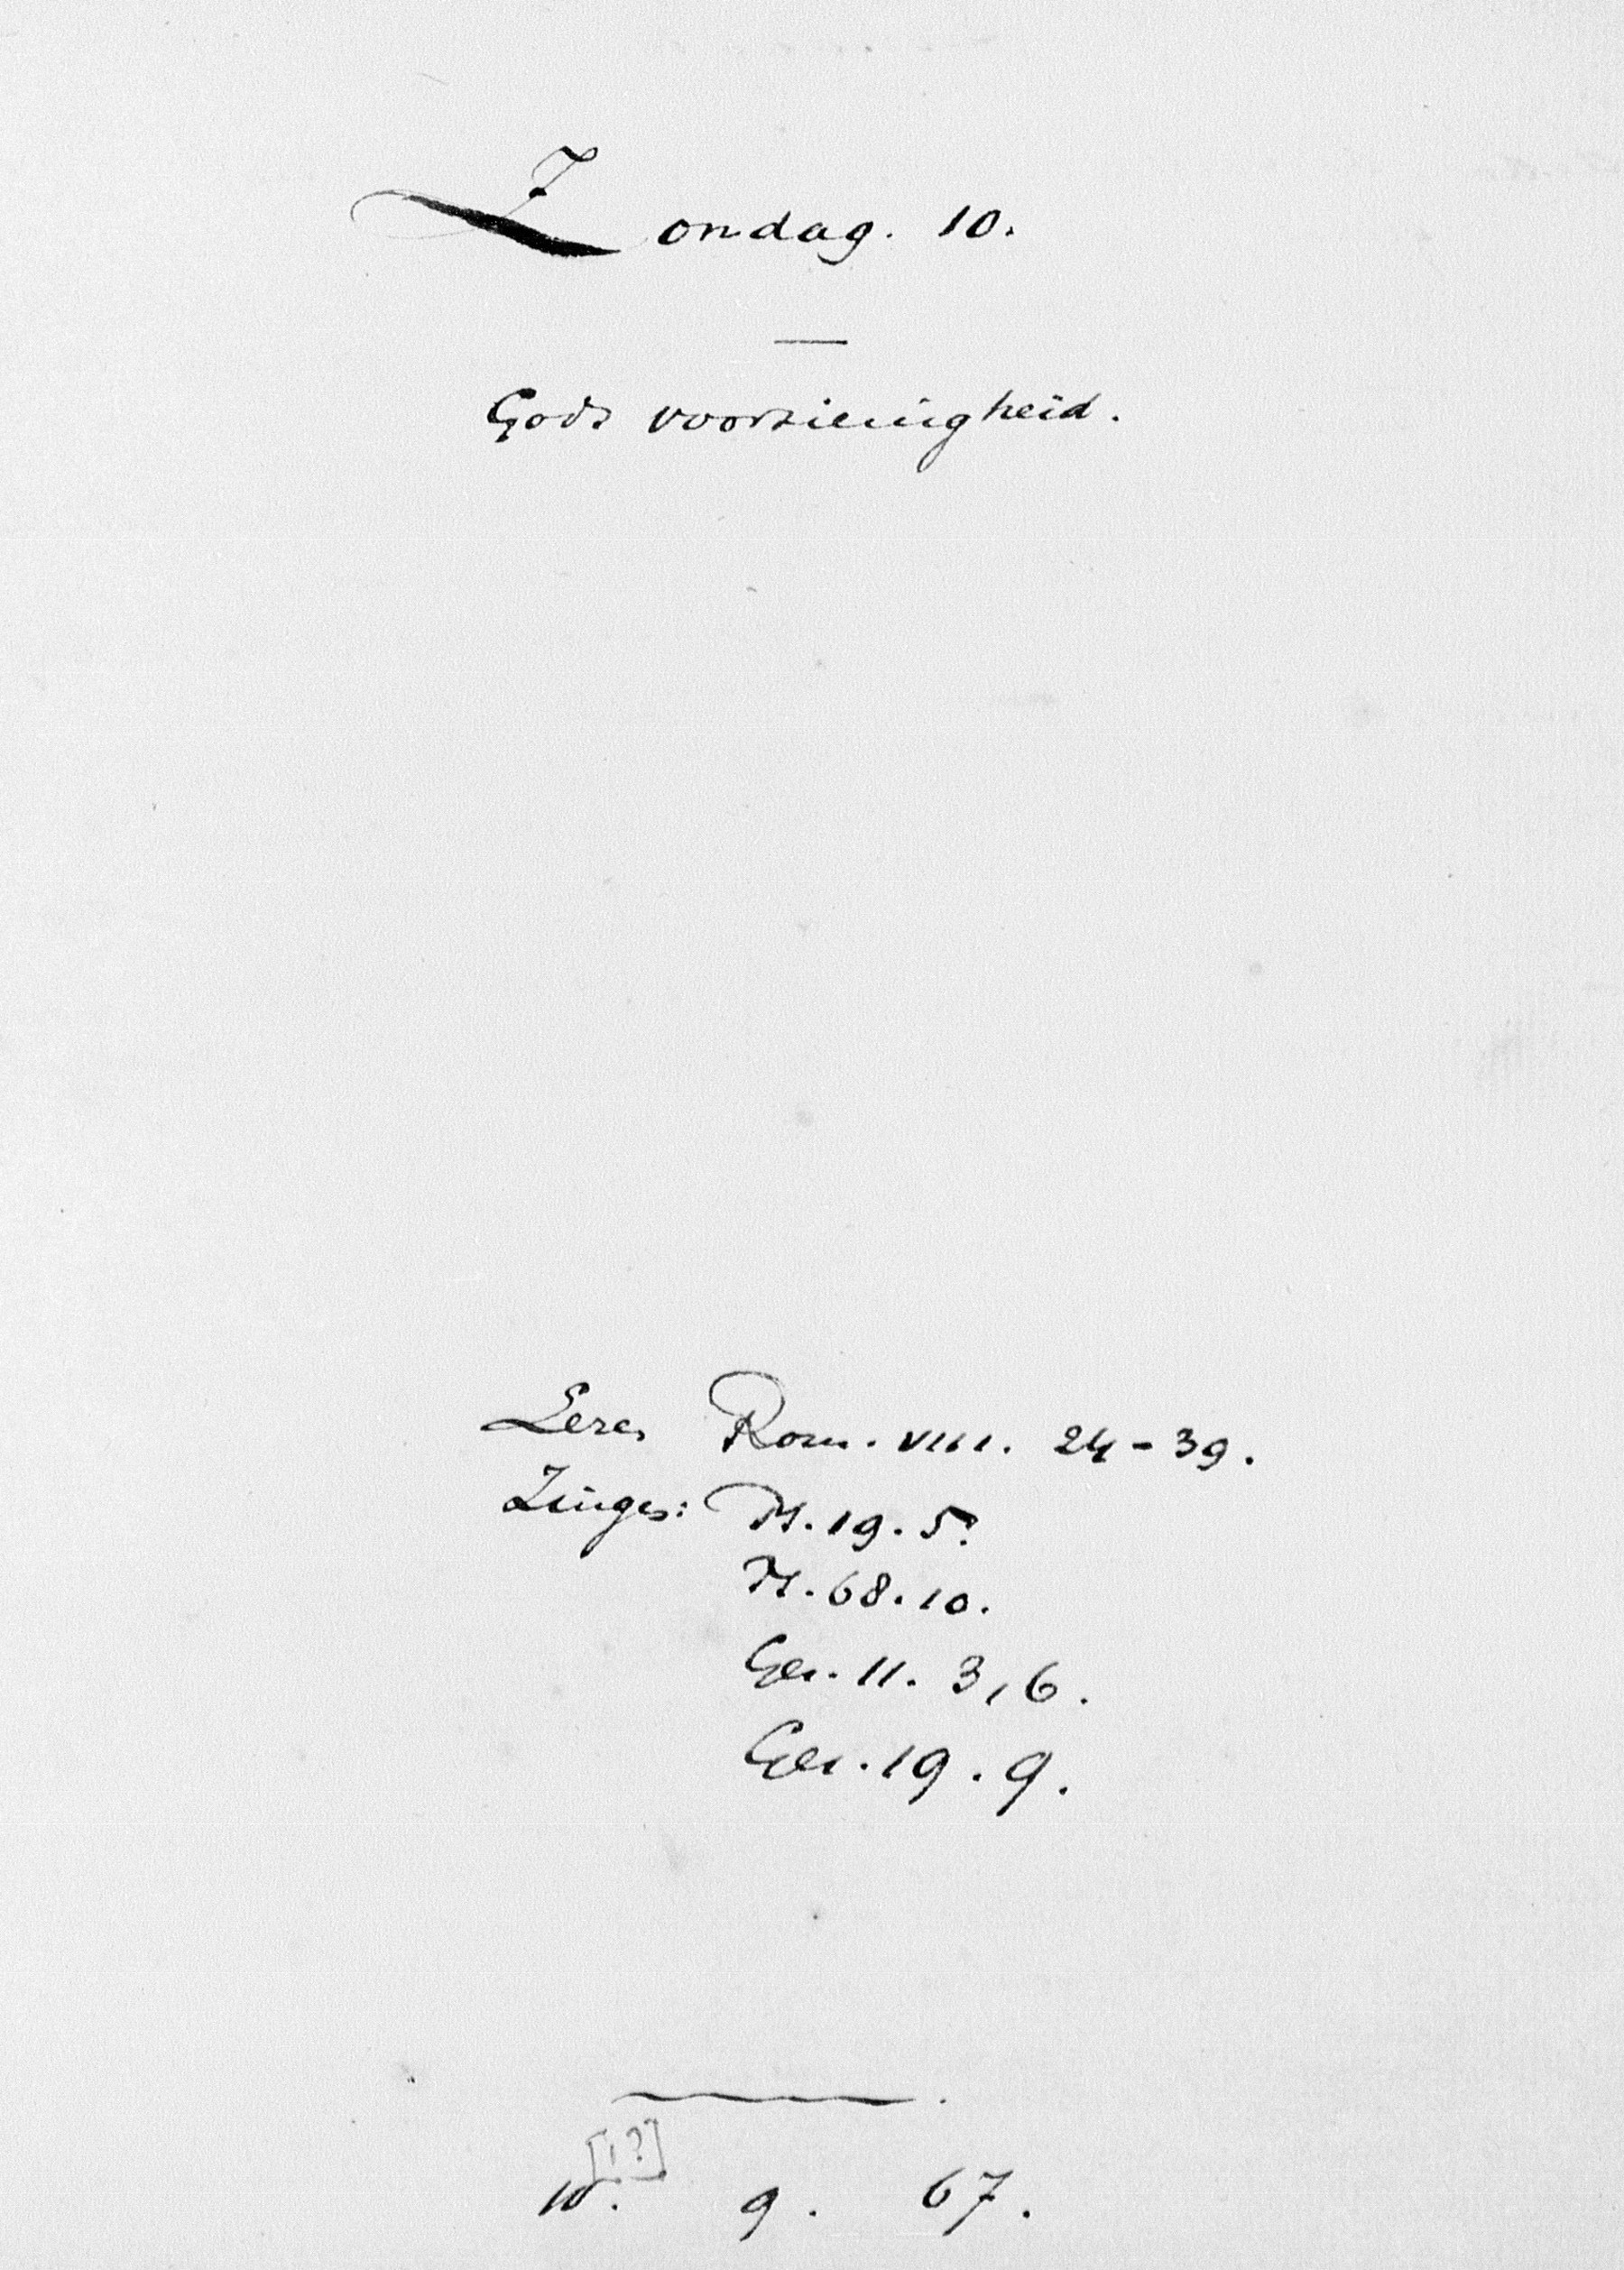 Zondag. 10.
Gods voorzienigheid.
Lezen Rom. VIII. 24 - 39.
Zingen: Ps. 19. 5.
Ps. 68. 10.
Gez. 11. 3, 6.
Gez. 19. 9.
[1?]
10. 9. 67.